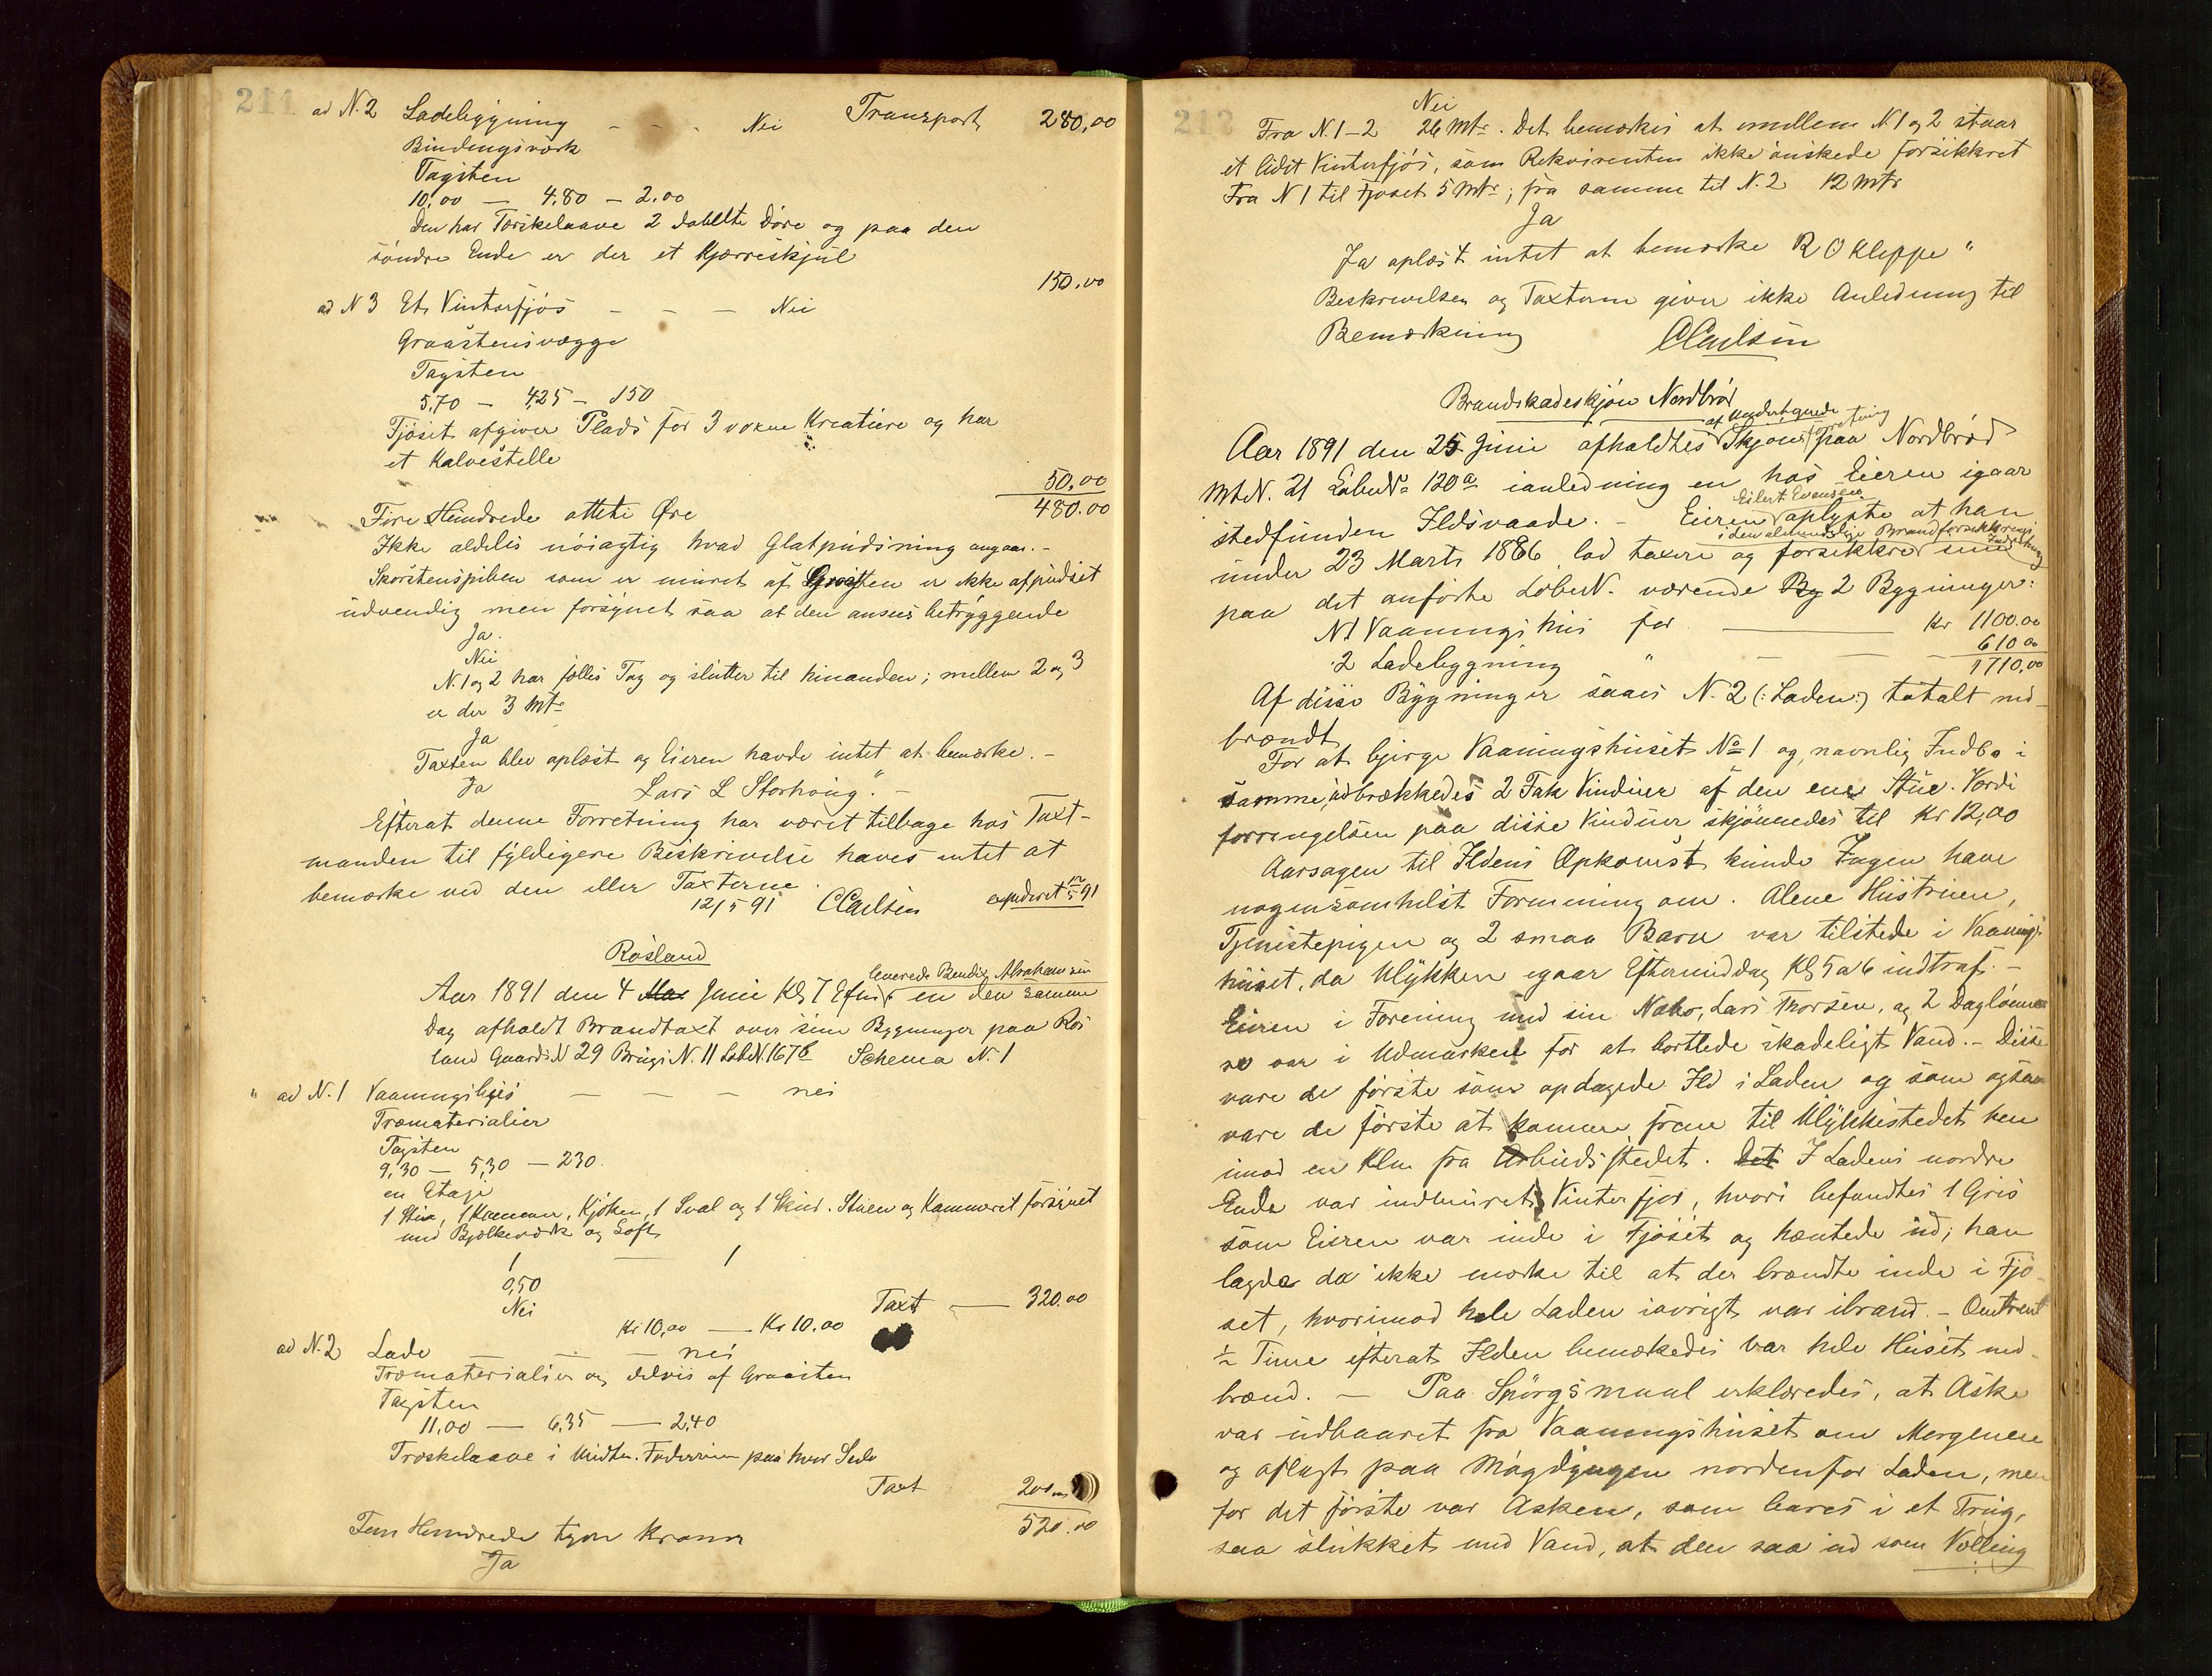 211
ad N. 2 Ladebygning - - - Nei Transport 280,00
Bindingsværk
Tagsten
10,00 — 4,80 — 2,00
Den har Tærskelaave 2 dobbelte Døre og paa den
søndre Ende er der et Kjærreskjul
150,00
ad N 3 Et Vinterfjøs - - - Nei
Graastensvægge
Tagsten
5,70 — 4,25 — 150
Fjøset afgiver Plads for 3 voxne Kreature og har
et Kalvestelle
50,00
Fire Hundrede otteti Øre 480.00
Ikke aldeles nøiagtig hvad Glatpudsning angaar. -
Skorstenspiben som er muret af Graasten er ikke afpudset
udvendig men forsynet saa at den ansees betryggende
Ja.
Nei
N. 1 og 2 har fælles Tag og slutter til hinanden; mellem 2 og 3
er der 3 Mtr
Ja
Taxten blev oplæst og Eieren havde intet at bemærke. -
Ja Lars L Storhoug". -
Efterat denne Forretning har været tilbage hos Taxt-
manden til fyldigere Beskrivelse haves intet at
bemærke ved den eller Taxterne.
12/5 91 CCarlsen expederet 12/5 91
Røsland
leverede Bendix Abrahamsen
Aar 1891 den 4 Juni Kl 7 Efm. en den samme
Dag afholdt Brandtaxt over sine Bygninger paa Røs
land Gaards N 29 Brugs N. 11 Løb N. 167b Schema N. 1
" ad N. 1 Vaaningshus — — — nei
Træmaterialier
Tagsten
9,30 — 5,30 — 230
en Etage
1 Stue, 1 Kammer, Kjøken, 1 Sval og 1 Skur. Stuen og Kammeret forsynet
med Bjælkeværk og Loft
1 — 1
0,50
Nei Taxt — 320.00
Kr 10,00 — Kr 10.00
ad N. 2 Lade — — — nei
Træmaterialier og delvis af Graasten
Tagsten
11,00 — 6,35 — 2,40
Træskelaave i Midten. Foderrum paa hver Side
Taxt 200
Fem Hundrede tyve Kroner 520.00
Ja
212
Nei
Fra N. 1-2 26 Mtr. Det bemærkes at mellem N 1 og 2 staar
et lidet Vinterfjøs, som Rekvirenten ikke ønskede forsikkret
Fra N 1 til Fjøset 5 Mtr; fra samme til N. 2 12 Mtr
Ja
Ja oplæst intet at bemærke R O Kleppe"
Beskrivelsen og Taxterne giver ikke Anledning til
Bemærkning CCarlsen
Brandskadeskjøn Nordbrød
af Undertegnede
Aar 1891 den 25 Juni afholdtes Skjønsforretning paa Nordbrød
Mt N. 21 Løbe No 120a ianledning en hos Eieren igaar
stedfunden Ildsvaade. - Eieren Eilert Evensen oplyste at han
under 23 Marts 1886 lod taxere og forsikkre i den almindelige Brandforsikkrings Indretning sine
paa det anførte LøbeN. værende By 2 Bygninger:
N 1 Vaaningshus for — Kr 1100.00
2 Ladebygning " — 610 00
1710,00
Af disse Bygninger saaes N. 2 (: Laden :) totalt ned-
brændt
For at bjerge Vaaningshuset No 1 og navnlig Indbo i
samme, udbrækkedes 2 Fak Vinduer af den ene Stue. Værdi
forringelsen paa disse Vinduer skjønnedes til Kr 12,00
Aarsagen til Ildens Opkomst kunde Ingen have
nogensomhelst Formening om. Alene Hustruen,
Tjenestepigen og 2 smaa Børn var tilstede i Vaanings-
huset, da Ulykken igaar Eftermiddag Kl 5 a 6 indtraf. -
Eieren i Forening med sin Nabo, Lars Thorsen, og 2 Dagløne
re var i Udmarken for at bortlede skadeligt Vand. - Disse
vare de første som opdagede Ild i Laden og som ogsaa
vare de første at komme frem til Ulykkestedet hen
imod en Klm fra Arbeidsstedet. Det I Ladens nordre
Ende var indmuret Vinterfjøs, hvori befandtes 1 Gris
som Eieren var inde i Fjøset og hentede ud; han
lagde da ikke mærke til at der brændte inde i Fjø-
set, hvorimod hele Laden iøvrigt var ibrand. - Omtrent
½ Time efterat Ilden bemærkedes var hele Huset ned-
brænd. — Paa Spørgsmaal erklæredes, at Aske
var udbaaret fra Vaaningshuset om Morgenen
og aflagt paa Møgdyngen nordenfor Laden, men
for det første var Asken, som bares i et Trug,
saa slukket med Vand, at den saa ud som Velling